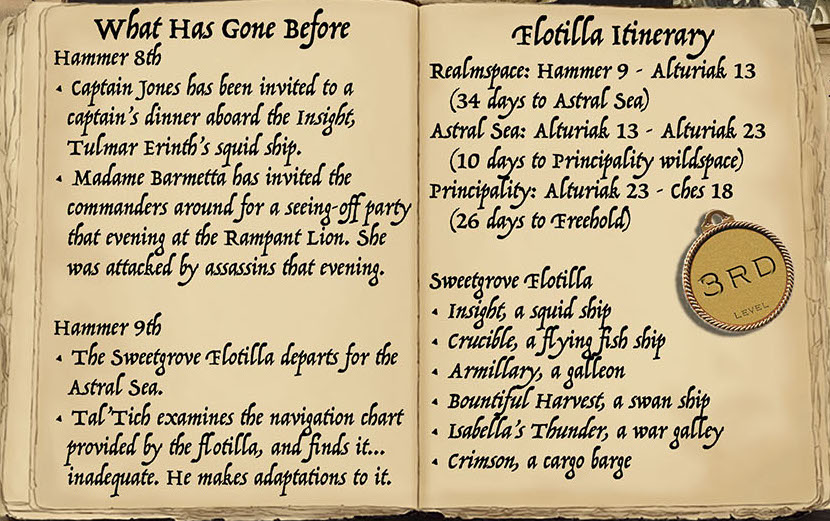 What Has Gone Before
Hammer 8th
• Captain Jones has been invited to a
captain's dinner aboard the Insight,
Tulmar Erinth's squid ship.
• Madame Barmetta has invited the
commanders around for a seeing-off party
that evening at the Rampant Lion. She
was attacked by assassins that evening.
Hammer 9th
• The Sweetgrove Flotilla departs for the
Astral Sea.
• Tal'Tich examines the navigation chart
provided by the flotilla, and finds it...
inadequate. He makes adaptations to it.
Flotilla Itinerary
Realmspace: Hammer 9 - Alturiak 13
(34 days to Astral Sea)
Astral Sea: Alturiak 13 - Alturiak 23
(10 days to Principality wildspace)
Principality: Alturiak 23 - Ches 18
(26 days to Freehold)
Sweetgrove Flotilla
• Insight, a squid ship
• Crucible, a flying fish ship
• Armillary, a galleon
• Bountiful Harvest, a swan ship
• Isabella's Thunder, a war galley
• Crimson, a cargo barge
3RD
LEVEL